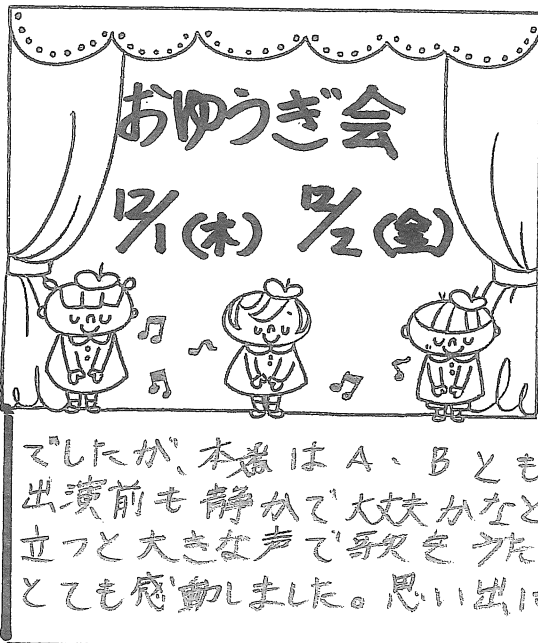 おゆうぎ会
12/1(木) 12/2(金)
でしたが、本番はA、Bとも
出演前も静かで大丈夫かなと
立つと大きな声で歌をうた
とても感動しました。思い出は